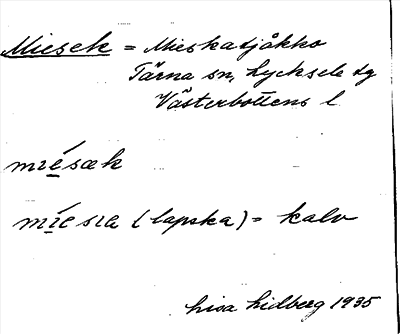 Miesek = Mieskatjåkko
Tärna sn, Lycksele tg
Västerbottens l.
mi̱ésæk
mi̱esıa (lapska) = kalv
Lisa Lidberg 1935